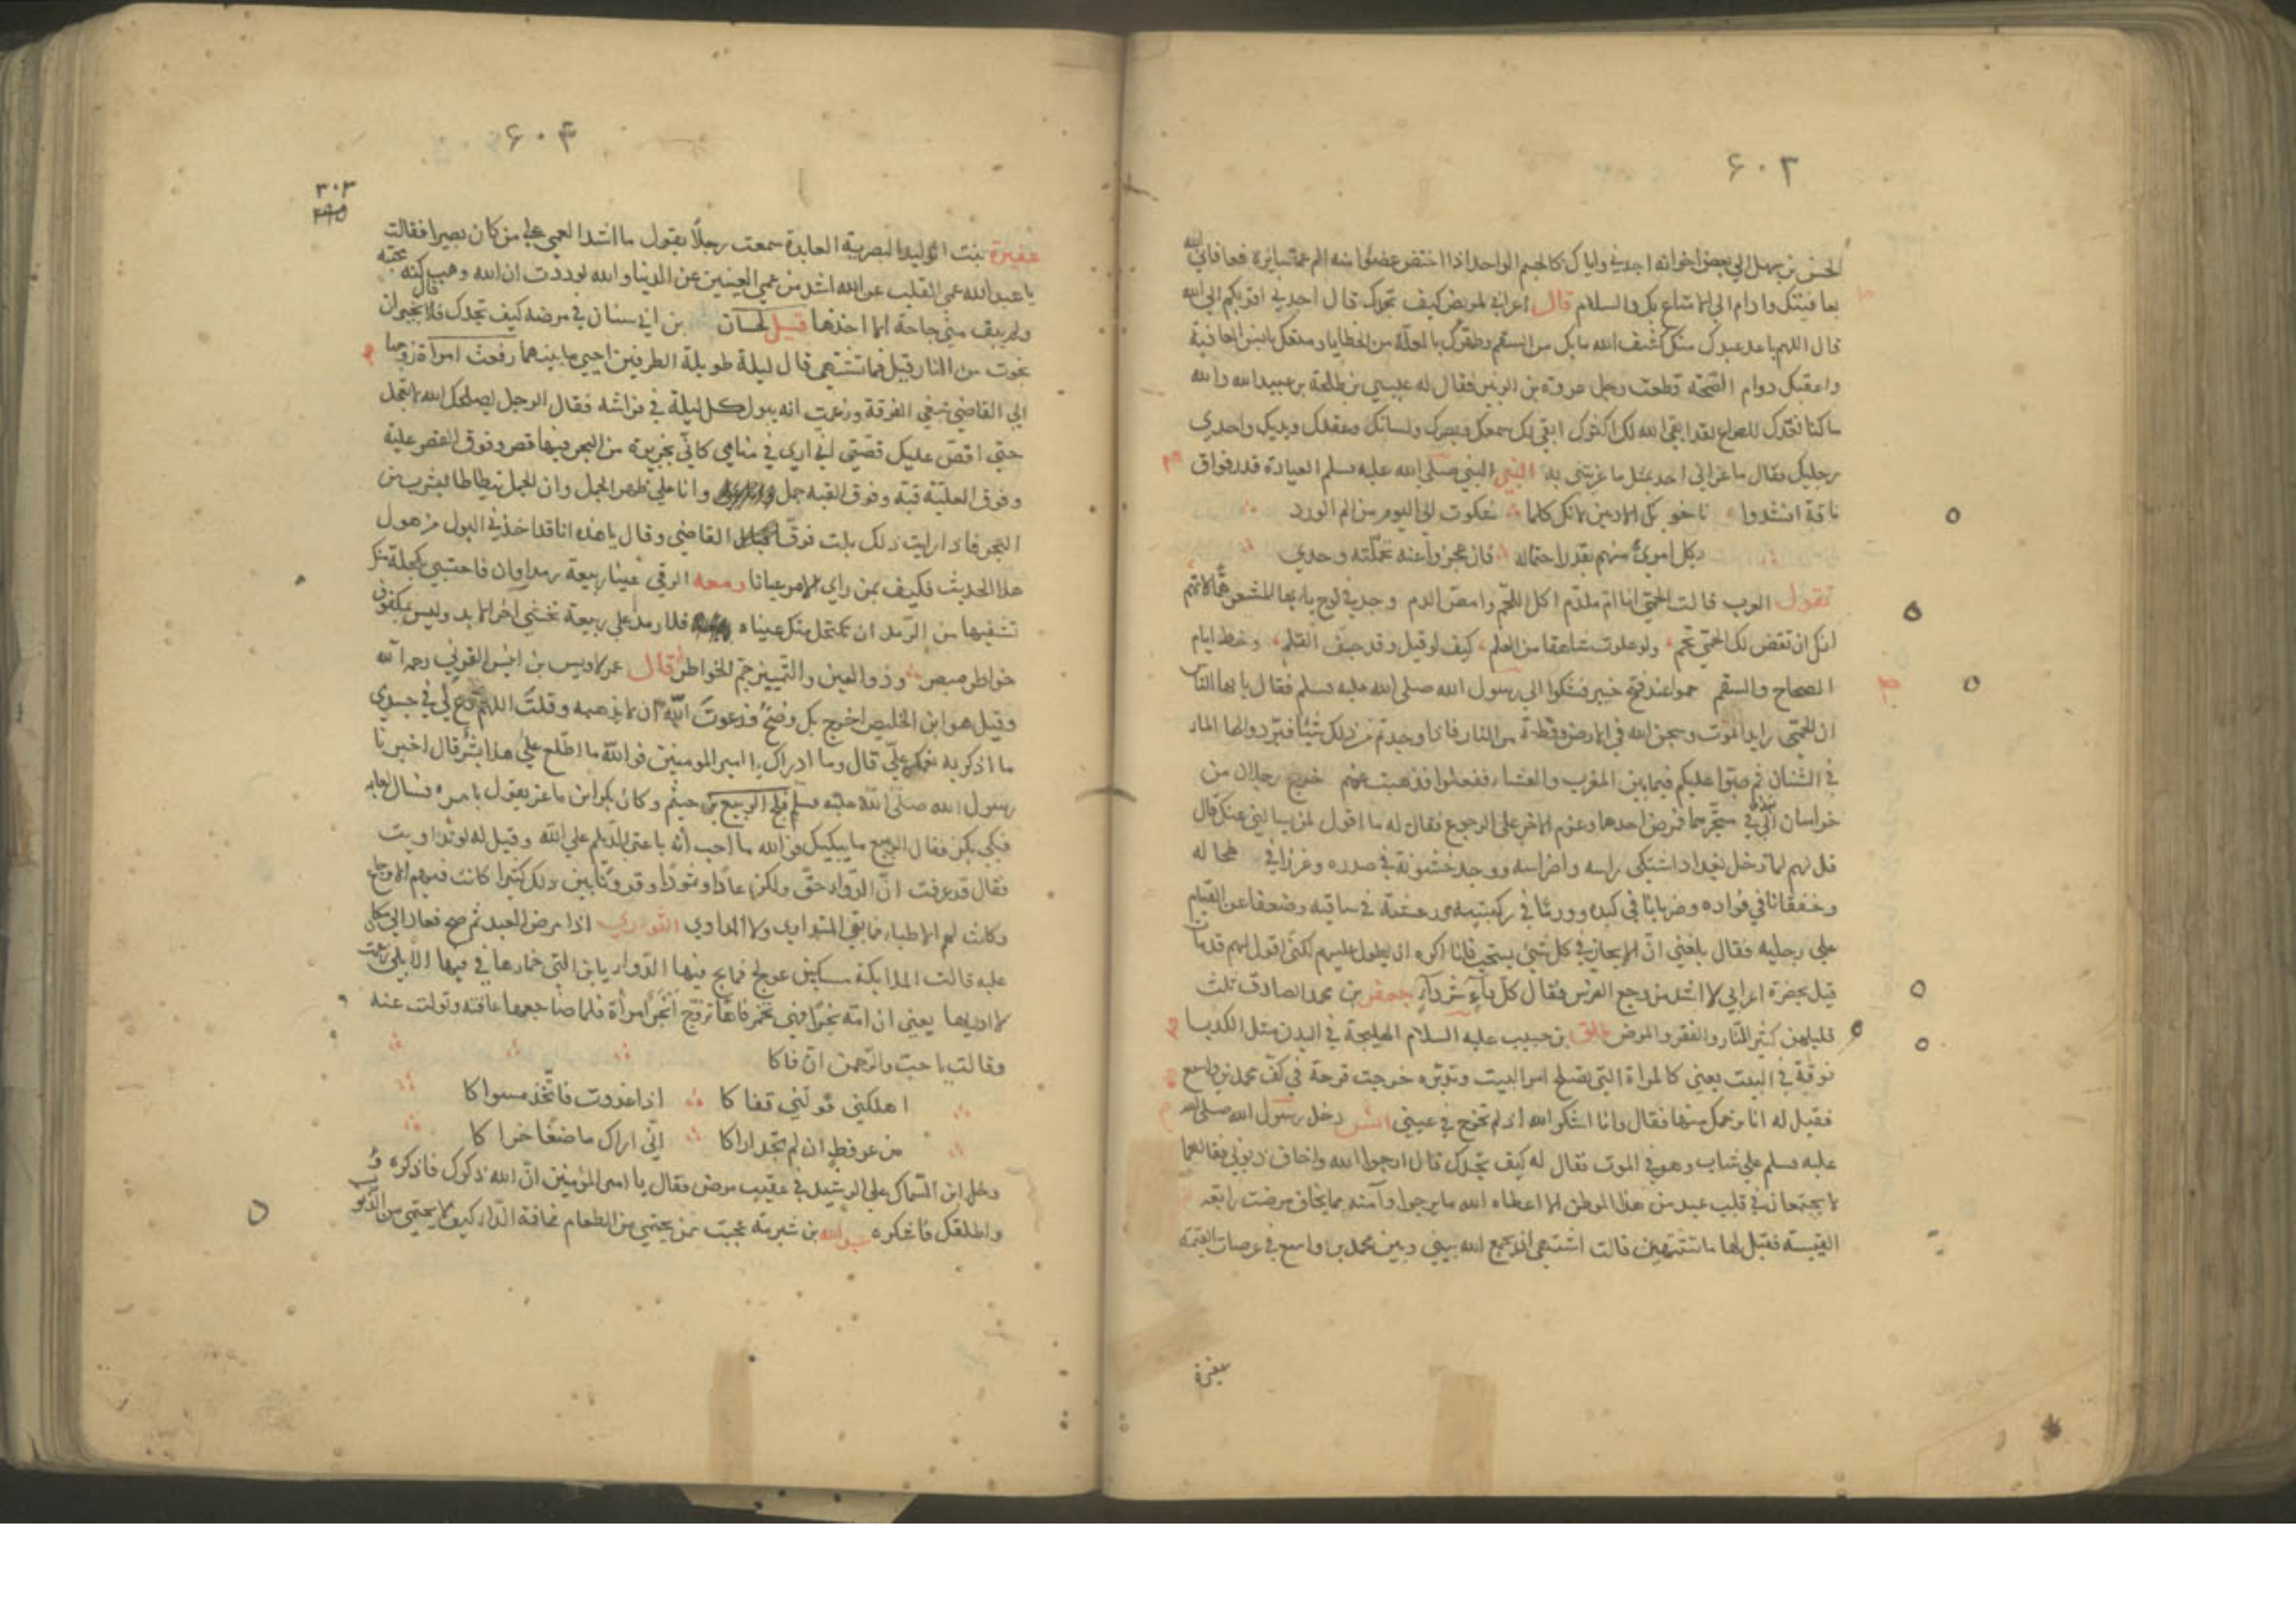 ۶۰۳
الحسن بن سهل الي بعض اخوانه اجدني واياك كالجسم الواحد اذا اختص عضوا منه الم عم سائره فعافاني الله
بعافيتك وادام لي الامتاع بك والسلام قال اعرابي لمريض كيف تجدك قال اجدني اقربكم الي الله
قال اللهم باعد عبدك منك كشف الله ما بك من السقم وطهرك بالعلة من الخطايا ومتعك بانس العافية
واعقبك دوام الصحة قطعت رجل عروة بن الزبير فقال له عيسي بن طلحة بن عبيد الله والله
ما كنا نعدك للصراع لقد ابقي الله لك اكثرك ابقي لك سمعك وبصرك ولسانك وعقلك ويديك واحدي
رجليك فقال ما عزاني احد بمثل ما عزيتني به النبي صلي الله عليه وسلم العيادة قدر فواق
ناقة انشدوا
شكوت الي اليوم من الم الورد
وكل امرئ منهم بقدر احتماله فان عجزوا عنه تحملته وحدي
تقول العرب قالت الحمي انا ام ملدم اكل اللحم وامص الدم
الصحاح والسقم حموا عند فتح خيبر فشكوا الي رسول الله صلي الله عليه وسلم فقال يا ايها الناس
ان الحمي رايد الموت وسجن الله في الارض وقطعة من النار فاذا وجدتم من ذلك شيئا فبردوا لها الماء
في الشنان ثم صبوا عليكم فيما بين المغرب والعشاء ففعلوا فذهبت عنهم خرج رجلان من
خراسان الي متجر لهما فمرض احدهما وعزم الاخر علي الرجوع فقال له ما اقول لمن يسالني عنك قال
قل لهم لما دخل بغداد اشتكي راسه واضراسه ووجد خشونة في صدره وغرزا في طحاله
وخفقانا في فؤاده وضربانا في كبده وورما في ركبتيه ورعشة في ساقيه وضعفا عن القيام
علي رجليه فقال بلغني ان الايجاز في كل شئ يستحب فانا اكره ان يطول عليهم لكني اقول لهم قد مات
قيل بحضرة اعرابي لا اشد من وجع الضرس فقال كل داء شر داء جعفر بن محمد الصادق ثلث
قليلهن كثير النار والفقر والمرض طلق بن حبيب عليه السلام الهليلجة في البدن مثل الكدبا
نوقة في البيت يعني كالمراة التي تصلح امر البيت وتدبره خرجت قرحة في كف محمد بن واسع
فقيل له انا نرحمك منها فقال وانا اشكر الله اذ لم تخرج في عيني انس دخل رسول الله صلي الله
عليه وسلم علي شاب وهو في الموت فقال له كيف تجدك قال ارجوا الله واخاف ذنوبي فقال هما
لا يجتمعان في قلب عبد من هذا الموطن الا اعطاه الله ما يرجوا وآمنه مما يخاف مرضت رابعة
القيسية فقيل لها ما تشتهين قالت اشتهي ان يجمع الله بيني وبين محمد بن واسع في عرصات القيمة
عفيرة
۶۰۴
۳۰۳
عفيرة بنت الوليد البصرية العابدة سمعت رجلا يقول ما اشد العمي علي من كان بصيرا فقالت
يا عبد الله عمي القلب عن الله اشد من عمي العينين عن الدنيا والله لوددت ان الله وهب لي كنه محبته
ولم يبق مني جارحة الا اخذها قيل لحسان بن ابي سنان في مرضه كيف تجدك قال بخير ان
نجوت من النار قيل فما تشتهي قال ليلة طويلة الطرفين احيي ما بينهما رفعت امراة زوجها
الي القاضي تبغي الفرقة وزعمت انه يبول كل ليلة في فراشه فقال الرجل اصلحك الله لا تعجل
حتي اقص عليك قصتي اني اري في منامي كاني بجزيرة من البحر وفيها قصر وفوق القصر علية
وفوق العلية قبة وفوق القبة جمل وانا علي ظهر الجمل وان الجمل يتطاطا ليشرب من
البحر فاذا رايت ذلك بلت فرقا القاضي وقال يا هذه انا قد اخذني البول من هول
هذا الحديث فكيف بمن راي الامر عيانا ومعه الرقي عينا ربيعة رمداوان فاحتسبي
تشفيها من الرمد ان تكتحل منك عيناه فلا رمد علي ربيعة تخشي آخر الابد
خواطر مبصر وذو العين والتمييز جم الخواطر قال عمر لاويس بن انيس القرني رحمه الله
وقيل هو ابن الخليص اخرج بك وضح فدعوت الله ان يذهبه وقلت اللهم دع لي في جسدي
ما اذكر به نعمك علي قال وما ادراك يا امير المومنين فو الله ما اطلع علي هذا بشر قال اخبرنا
رسول الله صلي الله عليه وسلم فلج الربيع بن خيثم وكان بكر ابن ماعز يقول
فبكي بكر فقال الربيع ما يبكيك فو الله ما احب انه باعتي الديلم علي الله وقيل له لو تداويت
فقال قد عرفت ان الدواء حق ولكن عادا وثمودا وقرونا بين ذلك كثيرا كانت فيهم الاوجاع
وكانت لهم الاطباء فما بقي المتداوي ولا المداوي الثوري اذا مرض العبد ثم صح فعاد الي ما كان
عليه قالت الملايكة مسكين عولج فما نجع فيها الدواء يا بن التي خمارها في فيها
لا ادريها يعني ان امه بخرا فهي تخمر فاها تزوج ابخر امراة فلما ضاجعها عافته وتولت عنه
وقالت يا حب والرحمن ان فاكا
اهلكني فولني قفاكا اذا غدوت فاتخذ مسواكا
من عرفط ان لم تجد اراكا اني اراك ماضغا خراكا
دخل ابن السماك علي الرشيد في عقيب مرض فقال يا امير المؤمنين ان الله ذكرك فاذكره
واطلقك فاشكره عبد الله بن شبرمة عجبت لمن يحتمي من الطعام مخافة الداء كيف لا يحتمي من الذنوب